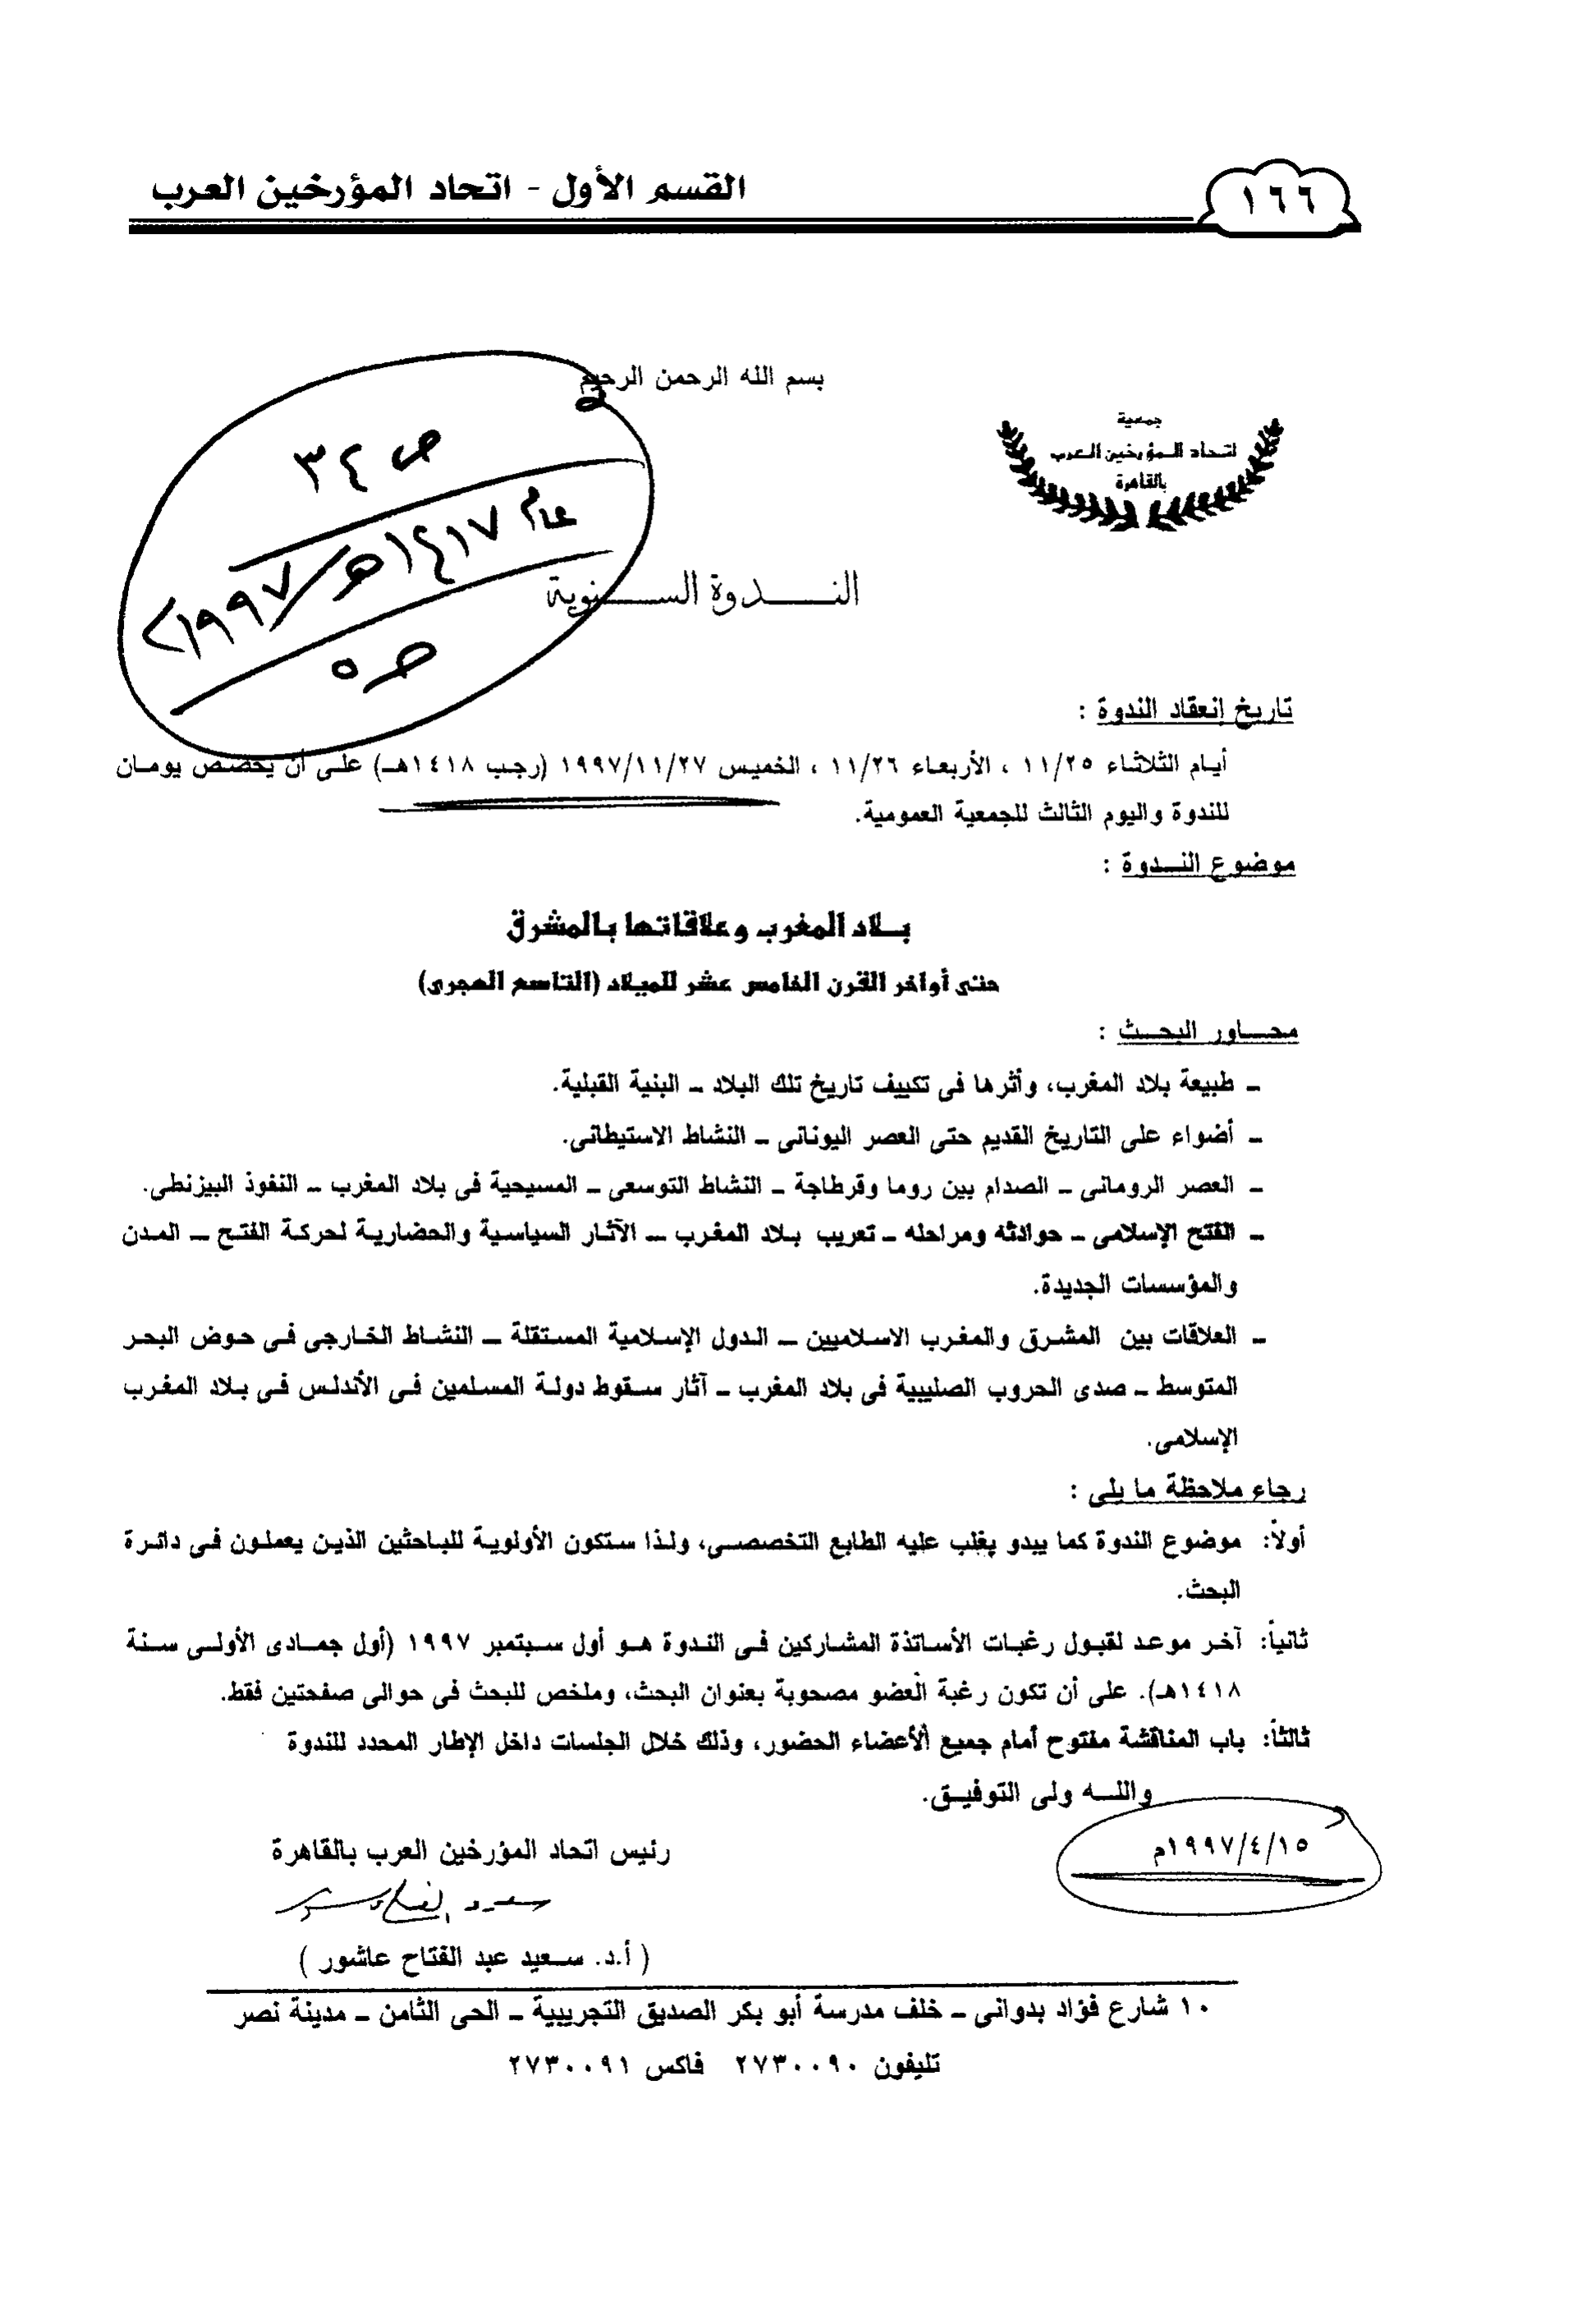 ١٦٦
القسم الأول - اتحاد المؤرخين العرب
بسم الله الرحمن الرحيم
جمعية
اتحاد المؤرخين العرب
بالقاهرة
ص ٣٤
عام ١٤١٧هـ/١٩٩٧م
ص ٥
الندوة السنوية
تاريخ إنعقاد الندوة :
أيام الثلاثاء ١١/٢٥ ، الأربعاء ١١/٢٦ ، الخميس ١٩٩٧/١١/٢٧ (رجب ١٤١٨هـ) على أن يخصص يومان
للندوة واليوم الثالث للجمعية العمومية.
موضوع الندوة :
بلاد المغرب وعلاقاتها بالمشرق
حتى أواخر القرن الخامس عشر للميلاد (التاسع الهجرى)
محاور البحث :
– طبيعة بلاد المغرب، وأثرها فى تكييف تاريخ تلك البلاد – البنية القبلية.
– أضواء على التاريخ القديم حتى العصر اليونانى – النشاط الاستيطانى.
– العصر الرومانى – الصدام بين روما وقرطاجة – النشاط التوسعى – المسيحية فى بلاد المغرب – النفوذ البيزنطى.
– الفتح الإسلامى – حوادثه ومراحله – تعريب بلاد المغرب – الآثار السياسية والحضارية لحركة الفتح – المدن
والمؤسسات الجديدة.
– العلاقات بين المشرق والمغرب الاسلاميين – الدول الإسلامية المستقلة – النشاط الخارجى فى حوض البحر
المتوسط – صدى الحروب الصليبية فى بلاد المغرب – آثار سقوط دولة المسلمين فى الأندلس فى بلاد المغرب
الإسلامى.
رجاء ملاحظة ما يلى :
أولاً: موضوع الندوة كما يبدو يغلب عليه الطابع التخصصى، ولذا ستكون الأولوية للباحثين الذين يعملون فى دائرة
البحث.
ثانياً: آخر موعد لقبول رغبات الأساتذة المشاركين فى الندوة هو أول سبتمبر ١٩٩٧ (أول جمادى الأولى سنة
١٤١٨هـ). على أن تكون رغبة العضو مصحوبة بعنوان البحث، وملخص للبحث فى حوالى صفحتين فقط.
ثالثاً: باب المناقشة مفتوح أمام جميع الأعضاء الحضور، وذلك خلال الجلسات داخل الإطار المحدد للندوة
والله ولى التوفيق.
١٩٩٧/٤/١٥م
رئيس اتحاد المؤرخين العرب بالقاهرة
( أ.د. سعيد عبد الفتاح عاشور )
١٠ شارع فؤاد بدوانى – خلف مدرسة أبو بكر الصديق التجريبية – الحى الثامن – مدينة نصر
تليفون ٢٧٣٠٠٩٠ فاكس ٢٧٣٠٠٩١